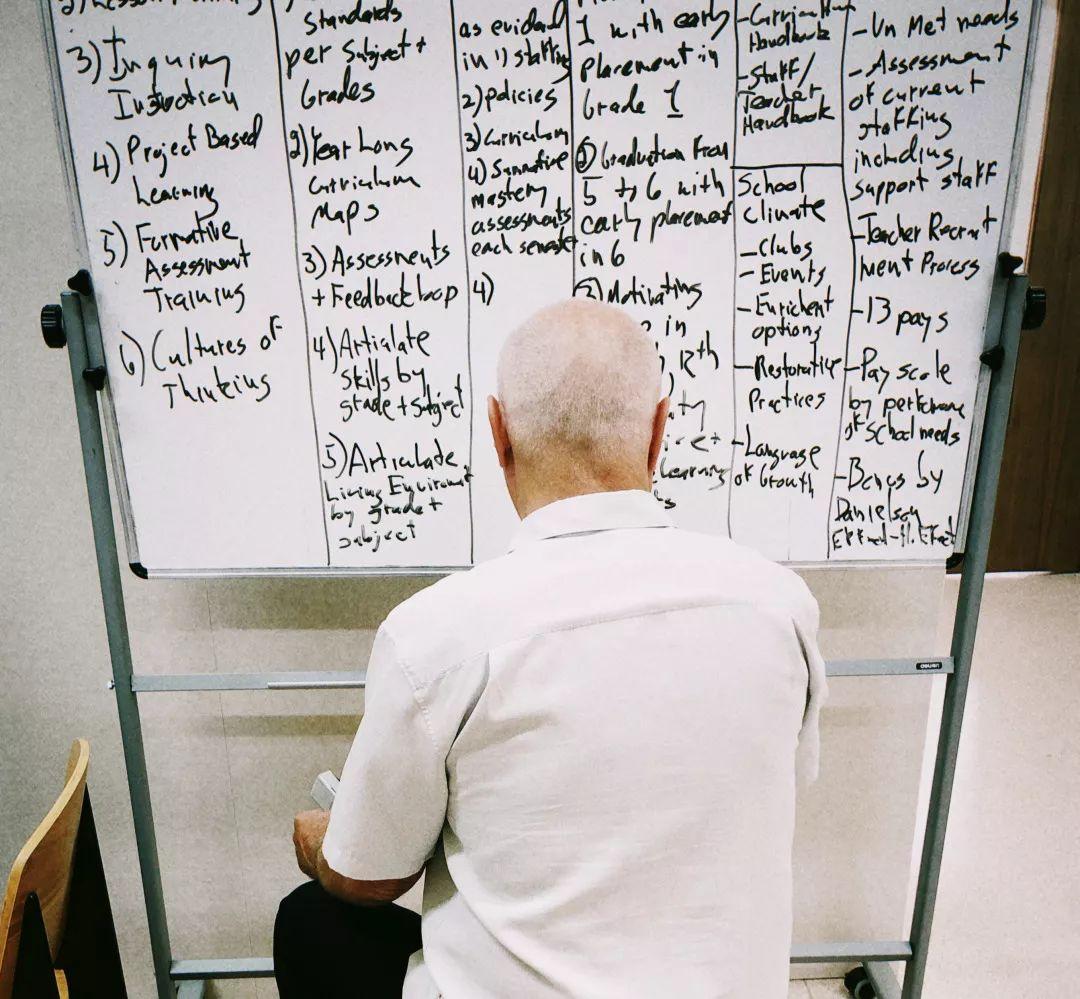 3) Inquiry
Instruction
4) Project Based
Learning
5) Formative
Assessment
Training
6) Cultures of
Thinking
Standards
per Subject +
Grades
2) Year Long
Curriculum
Maps
3) Assessments
+ Feedback loop
4) Artialate
Skills by
grade + Subject
5) Artialate
Living Enviroment
by grade +
subject
as evidend
in 1) staffing
2) policies
3) Curriculum
4) Summative
mastery
assessments
each semester
4)
1 with early
placement in
Grade 1
② Graduation from
5 to 6 with
early placement
in 6
③ Motivating
in
12th
Learning
Handbook
- Staff/
Teacher
Handbook
School
climate
- Clubs
- Events
- Enrichent
options
- Restorative
Practices
- Language
of Growth
- Un Met needs
- Assessment
of current
staffing
including
support staff
- Teacher Recruit
ment Process
- 13 pays
- Pay scale
by performance
of School needs
by
Danielson
deli